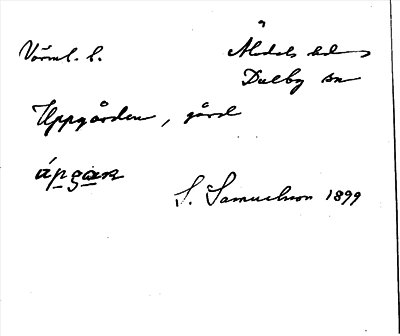 Värml. l.
Älvdals hd
Dalby sn
Uppgården, gård
S. Samuelson 1899